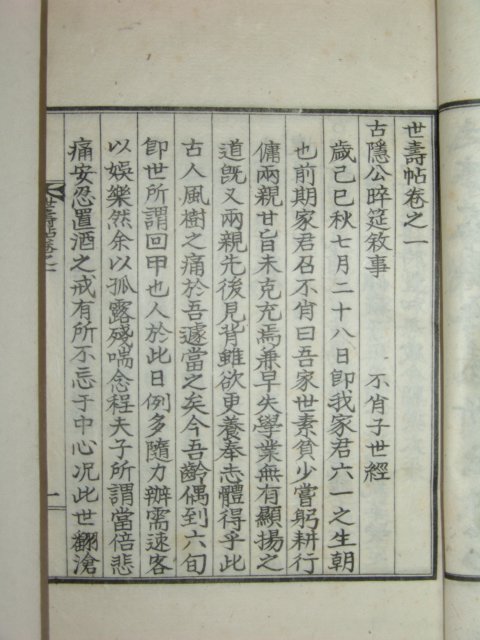 世壽帖卷之一
古隱公晬筵敘事 不肖子世經
歲己巳秋七月二十八日卽我家君六一之生朝
也前期家君召不肖曰吾家世素貧少嘗躬耕行
傭兩親甘旨未克充焉兼早失學業無有顯揚之
道旣又兩親先後見背雖欲更養奉志體得乎此
古人風樹之痛於吾遽當之矣今吾齡偶到六旬
卽世所謂回甲也人於此日例多隨力辦需速客
以娛樂然余以孤露殘喘念程夫子所謂當倍悲
痛安忍置酒之戒有所不忘于中心况此世翻滄
世壽帖卷之一
一